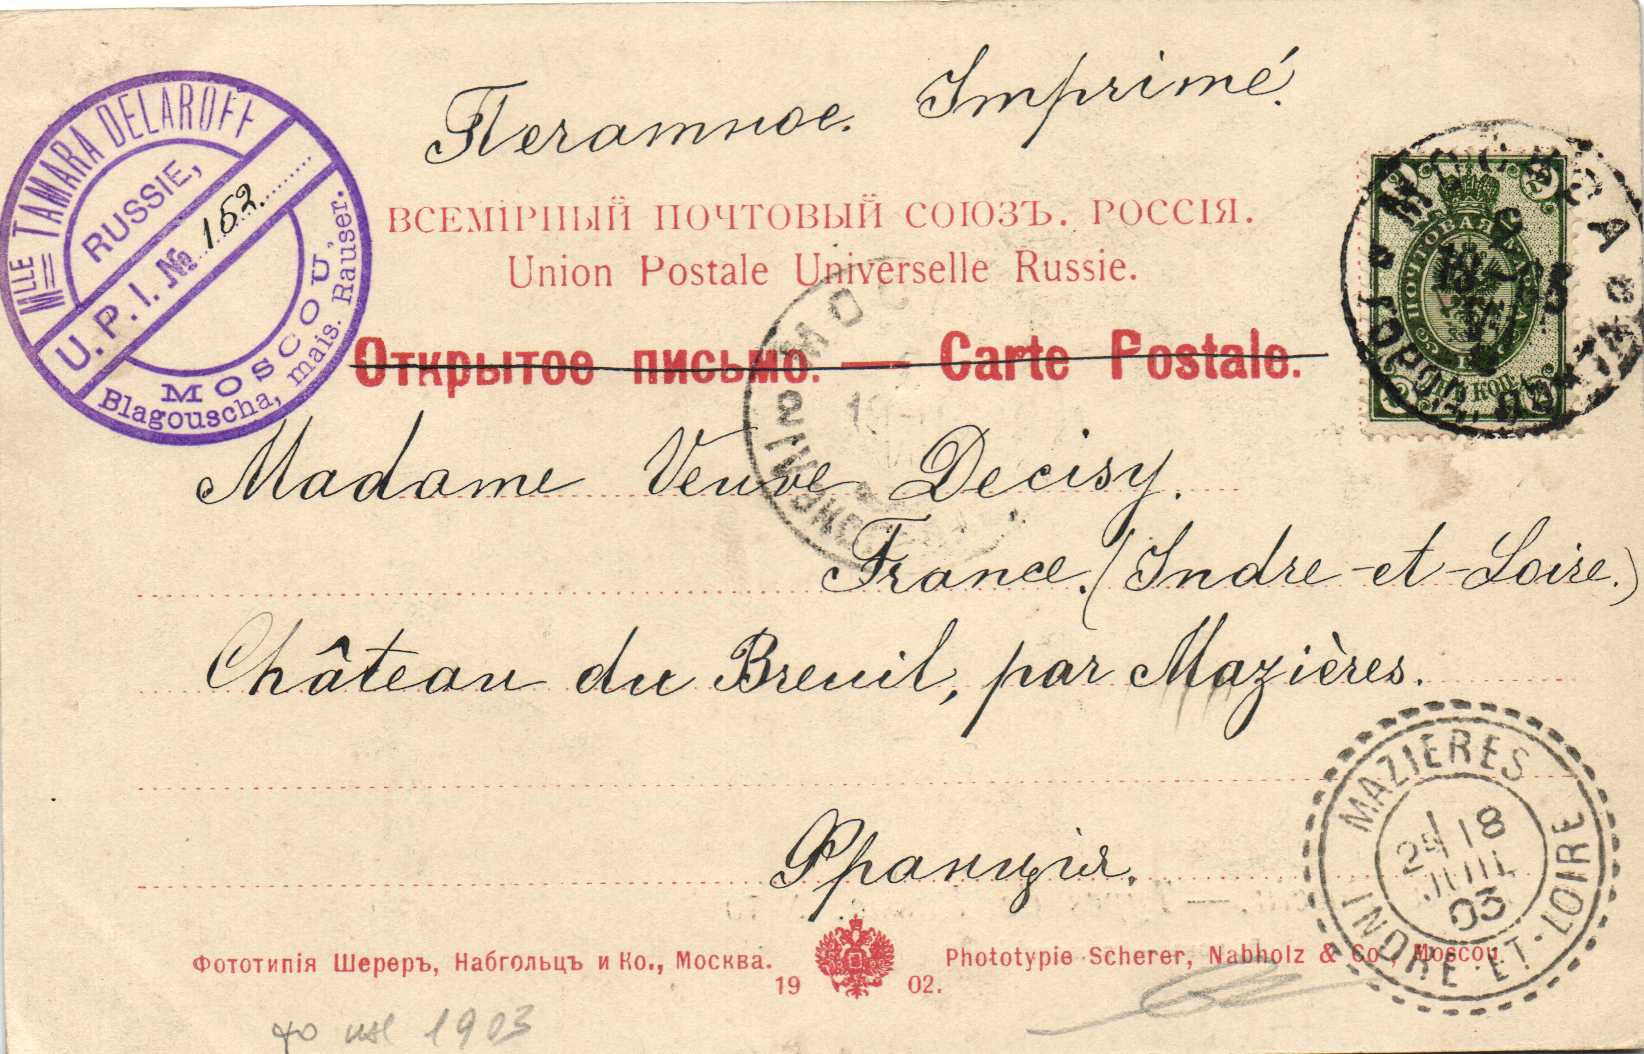 Печатное. Imprimé.
Mlle TAMARA DELAROFF
RUSSIE,
U. P. I. № 152.
MOSCOU,
Blagouscha, mais. Rauser.
ВСЕМІРНЫЙ ПОЧТОВЫЙ СОЮЗЪ. РОССІЯ.
Union Postale Universelle Russie.
Открытое письмо. — Carte Postale.
МОСКВА
ПОЧТОВАЯ МАРКА
МОС
19
Madame Veuve Decisy.
France. (Indre-et-Loire.)
Château du Breuil, par Mazières.
Франція.
MAZIERES
25 JUIL
03
INDRE-ET-LOIRE
Фототипія Шереръ, Набгольцъ и Ко., Москва.
Phototypie Scherer, Nabholz & Co, Moscou.
1902.
1903